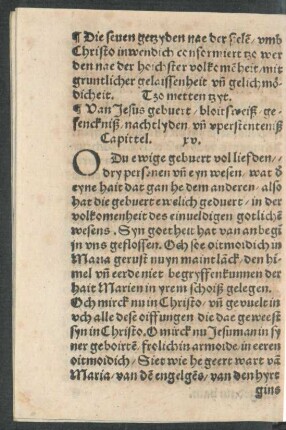 ¶ Die seuen getzyden nae der selē/ vmb
Christo inwendich conformiert tzo wer
den nae der hoichster volkomēheit/mit
gruntlicher gelaissenheit vn̄ gelichmō
dicheit. Tzo metten tzyt.
¶ Van Jesus gebuert/ bloitsweiß/ ge-
fenckniß/nachtlyden vn̄ vperstenteniß
Capittel. xv.
O Du ewige gebuert vol liefden/
dry personen vn̄ eyn wesen/ wat d̄
eyne hait dat gan he dem anderen/ also
hat die gebuert ewelich geduert/ in der
volkomenheit des einueldigen gotlichē
wesens. Syn goetheit hat van anbegī
in vns geflossen. Och soe oitmoidich in
Maria gerust nu yn maint läck/ den hi-
mel vn̄ eerde niet begryffen kunnen der
hait Marien in yrem schoiß gelegen.
Och mirck nu in Christo/ vn̄ gevuelt in
vch alle dese oiffungen die dae geweest
syn in Christo. O mirck nu Jesum an in sy
ner geboirtē/ frolich in armoide/ in eeren
oitmoidich/ Siet wie he geert wart vā
Maria/ van dē engelgēs/ van den hyrt
gins